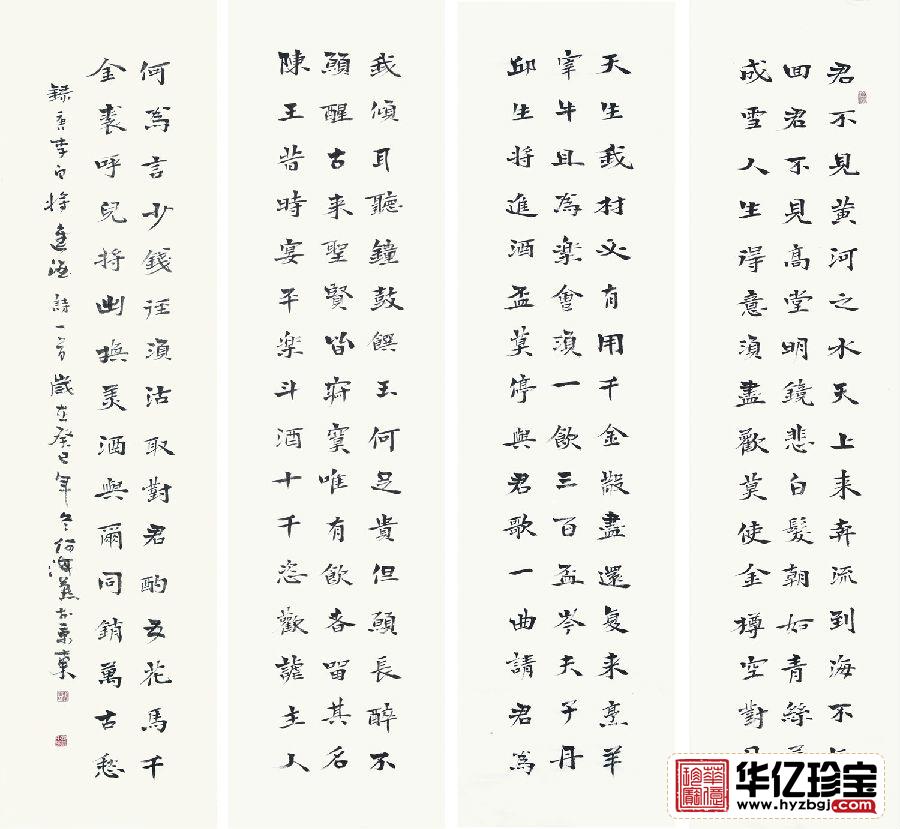 君不見黄河之水天上来奔流到海不
回君不見高堂明鏡悲白髮朝如青絲
成雪人生得意須盡歡莫使金樽空對
天生我材必有用千金散盡還复来烹羊
宰牛且為楽會須一飲三百盃岑夫子丹
邱生将進酒盃莫停與君歌一曲請君為
我傾耳聽鐘鼓饌玉何足貴但願長醉不
願醒古来聖賢皆寂寞唯有飲者留其名
陳王昔時宴平楽斗酒十千恣歡謔主人
何為言少錢徑須沽取對君酌五花馬千
金裘呼兒将出換美酒與爾同銷萬古愁
録唐李白将進酒詩一首歲在癸巳年冬何海燕於京東
华亿珍宝
www.hyzbgj.com